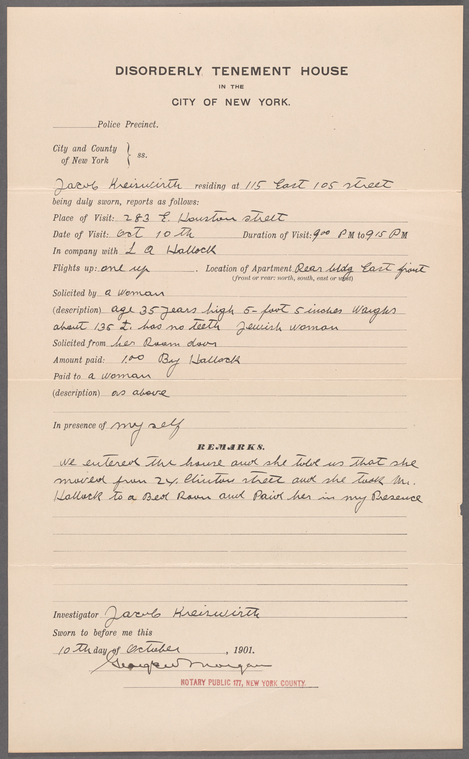 DISORDERLY TENEMENT HOUSE
IN THE
CITY OF NEW YORK.
Police Precinct.
City and County
of New York } ss.
Jacob Kreiswirth residing at 115 East 105 street
being duly sworn, reports as follows:
Place of Visit: 283 E. Houston street
Date of Visit: Oct 10th Duration of Visit: 9 00 PM to 9 15 PM
In company with L A Hallock
Flights up: one up. Location of Apartment Rear bldg East front
(front or rear: north, south, east or west)
Solicited by a woman
(description) age 35 years high 5-foot 5 inches Waighs
about 135 £. has no teeth Jewish woman
Solicited from her Room door
Amount paid: 1.00 By Hallock
Paid to a woman
(description) as above
In presence of my self
REMARKS.
We entered the house and she told us that she
moved from 24 Clinton street and she took Mr.
Hallock to a Bed Room and Paid her in my Presence
Investigator Jacob Kreiswirth
Sworn to before me this
10th day of October, 1901.
George W Morgan
NOTARY PUBLIC 177, NEW YORK COUNTY.